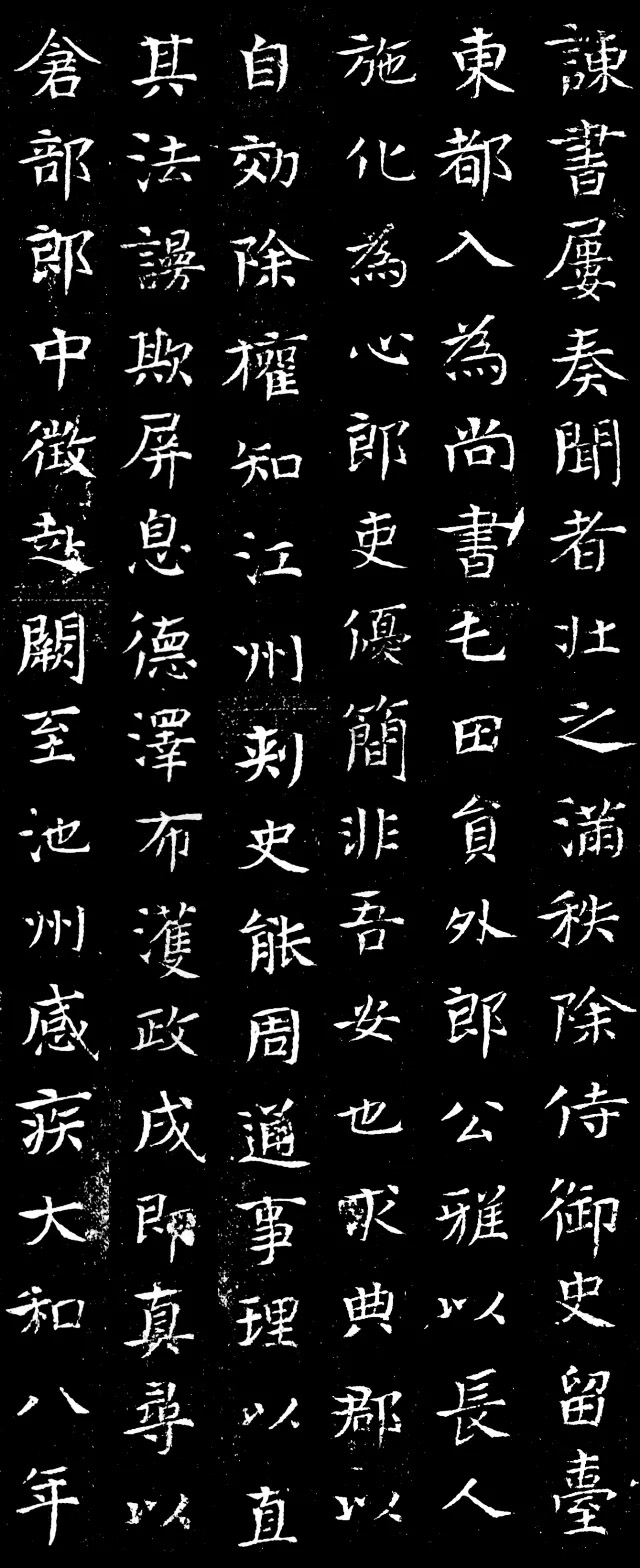 諫書屢奏聞者壯之滿秩除侍御史留臺
東都入為尚書屯田貟外郎公雅以長人
施化為心郎吏優簡非吾安也求典郡以
自効除權知江州刺史能周通事理以直
其法謾欺屏息德澤布濩政成即真尋以
倉部郎中徵赴闕至池州感疾大和八年